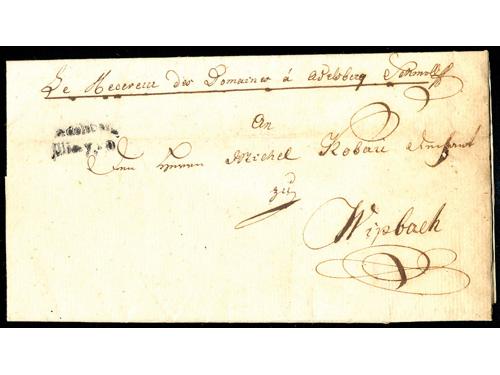 Le Receveur des Domaines à Adelsberg
An
Den Herren Michel Kobau
zu
Wipbach